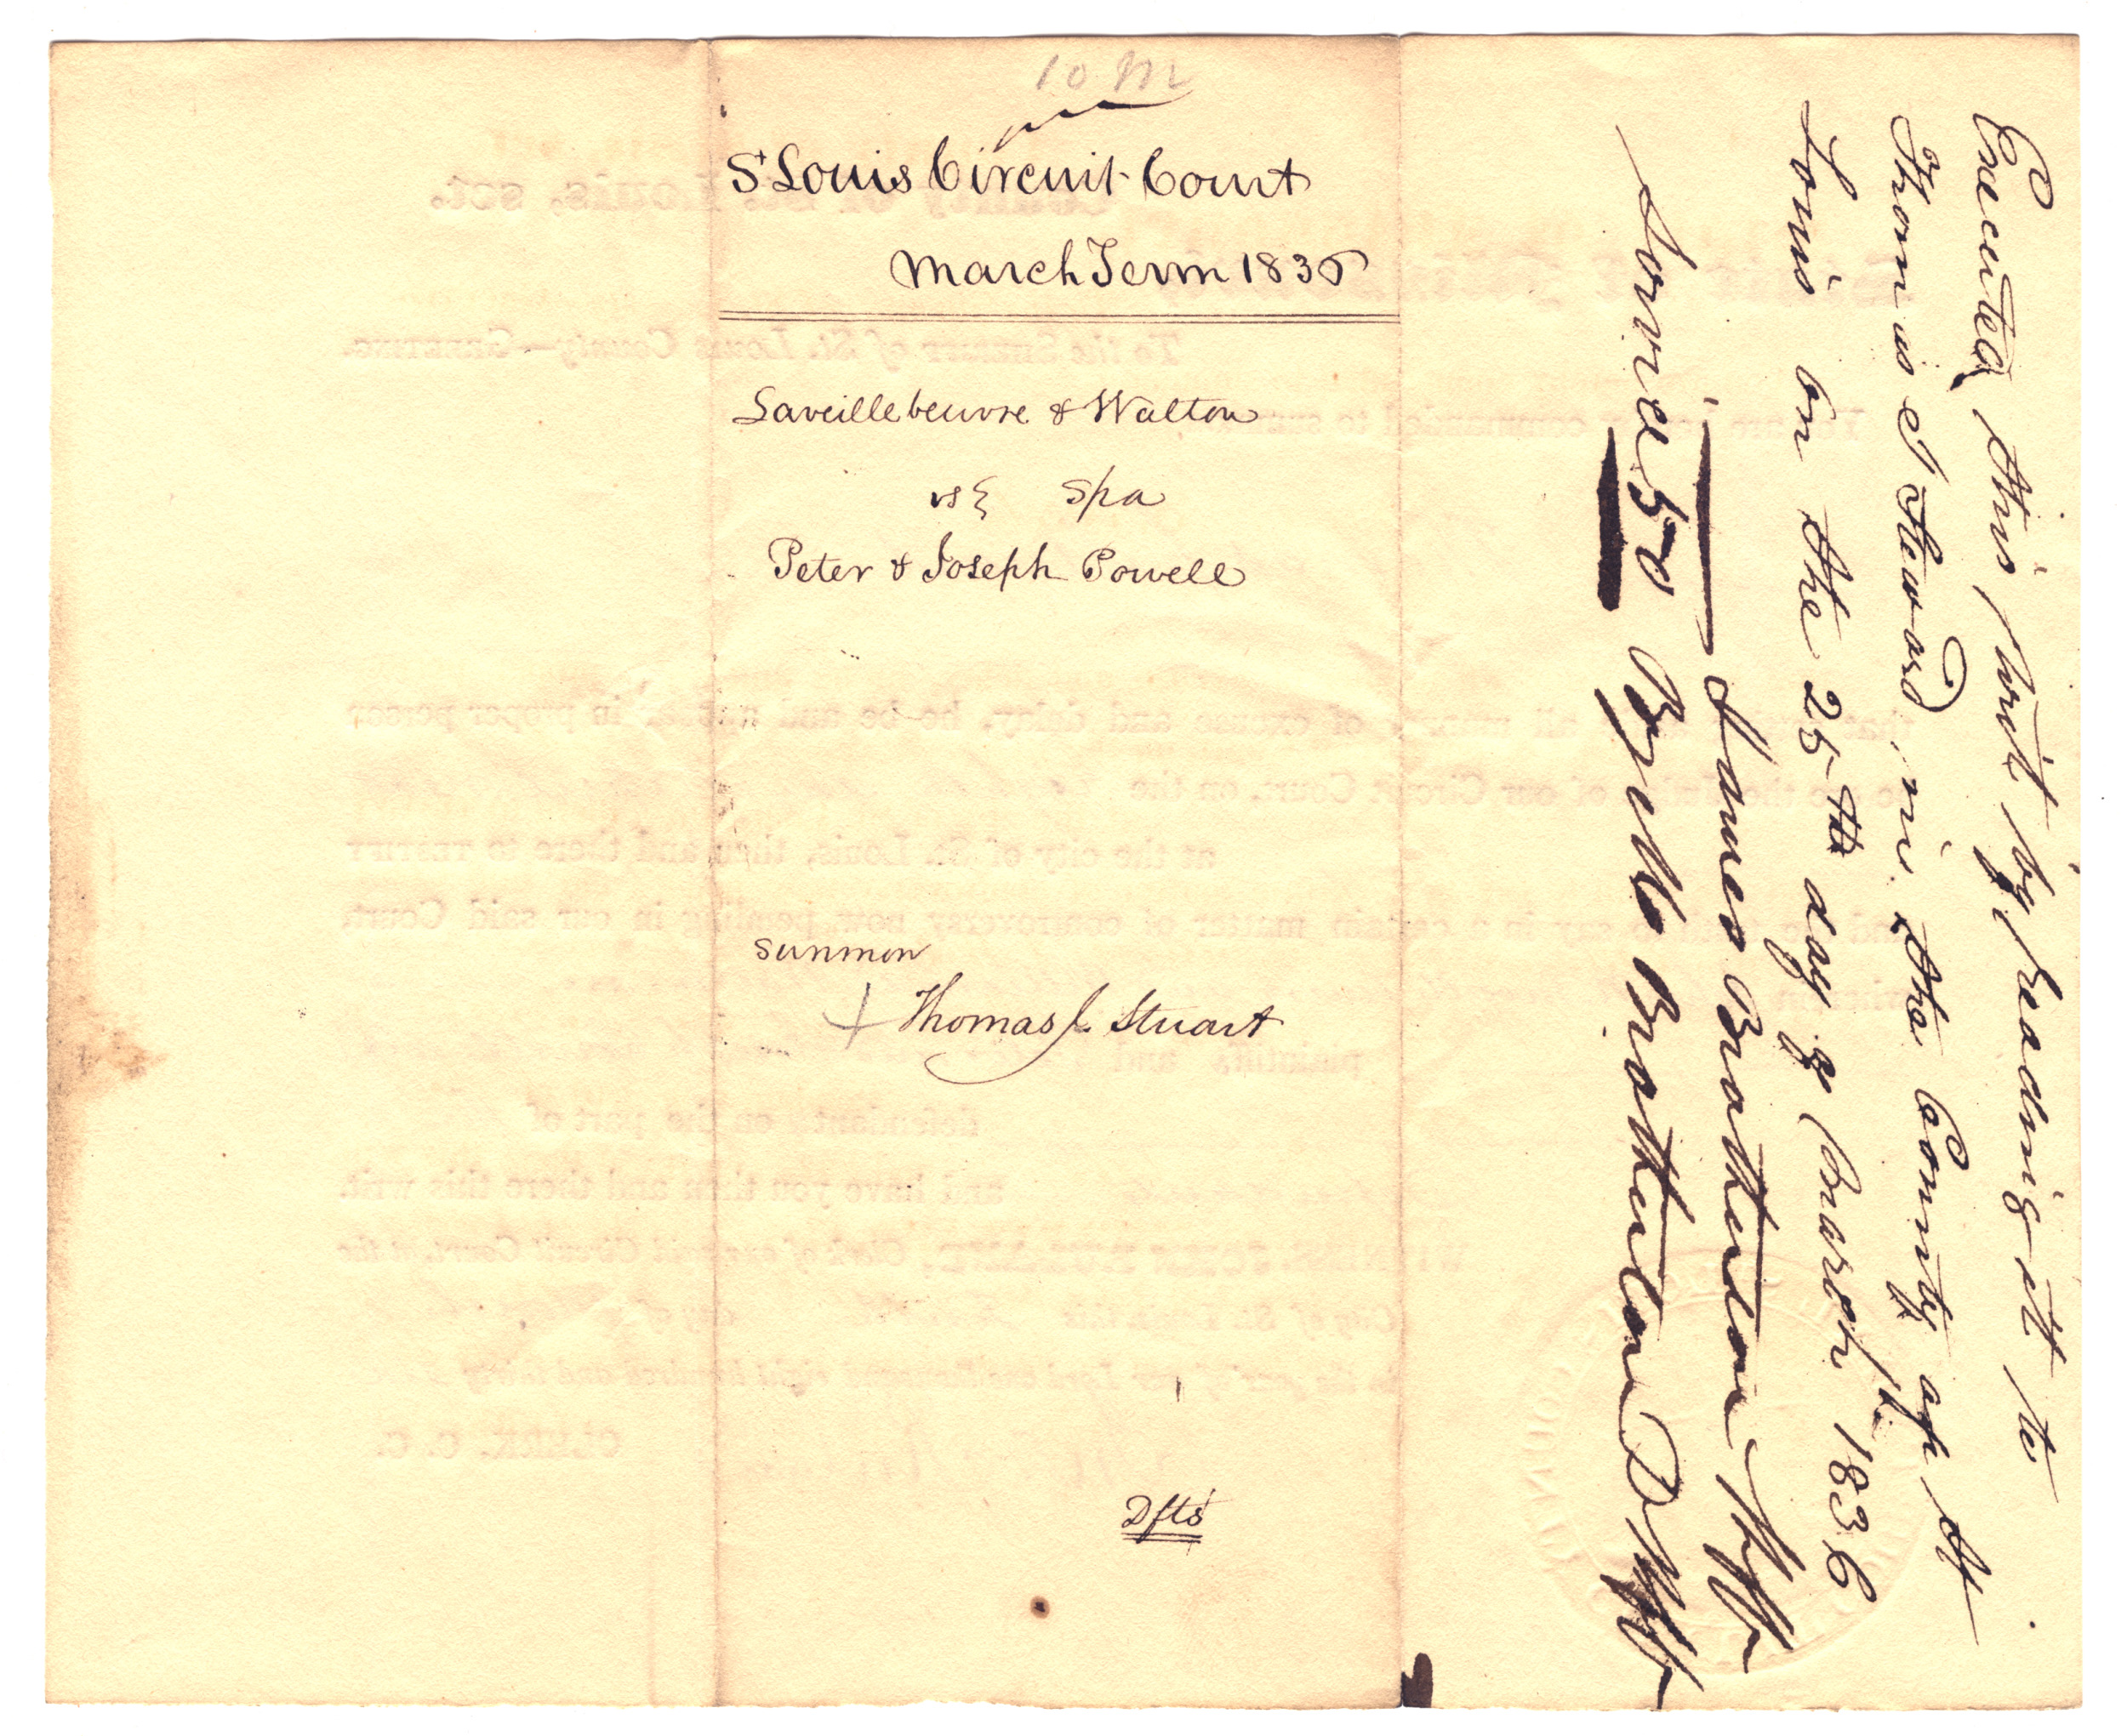 10 M
St Louis Circuit Court
March Term 1836
Laveillebeuvre & Walton
vs } Spa
Peter & Joseph Powell
Summon
+ Thomas J. Stuart
Dfts
Executed this writ by reading it to
Thomas J Steward in the County of St
Louis on the 25th day of March 1836
James Brotherton Shff
Service 50 By M Brotherton D Shff